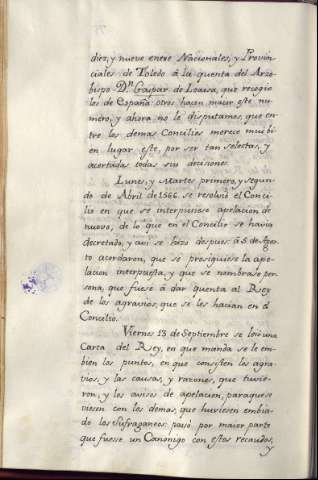 diez, y nueve entre Nacionales, y Provin-
ciales de Toledo à la quenta del Arzo-
bispo Dn. Gaspar de Loaisa, que recogio
los de España: otros hacen maior este nu-
mero, y ahora no le disputamos, que en-
tre los demas Concilios merece mui bi-
en lugar este, por ser tan selectas, y
acertadas todas sus decisiones.
Lunes, y Martes primero, y segun-
do de Abril de 1566. se resolvió el Conci-
lio en que se interpusiese apelacion de
nuevo, de lo que en el Concilio se havia
decretado, y asi se hizo despues: à 5 de Agos-
to acordaron, que se prosiguiese la ape-
lacion interpuesta, y que se nombrase per-
sona, que fuese à dar quenta al Rey
de los agravios, que se les hacian en el
Concilio.
Viernes 13 de Septiembre se leió una
Carta del Rey, en que manda se le em-
bien los puntos, en que consisten los agra-
vios, y las causas, y razones, que tuvie-
ron, y los autos de apelacion, para que se
viesen con los demas, que tuviesen embia-
do los Sufraganeos: pasó por maior parte
que fuese un Canonigo con estos recaudos, y